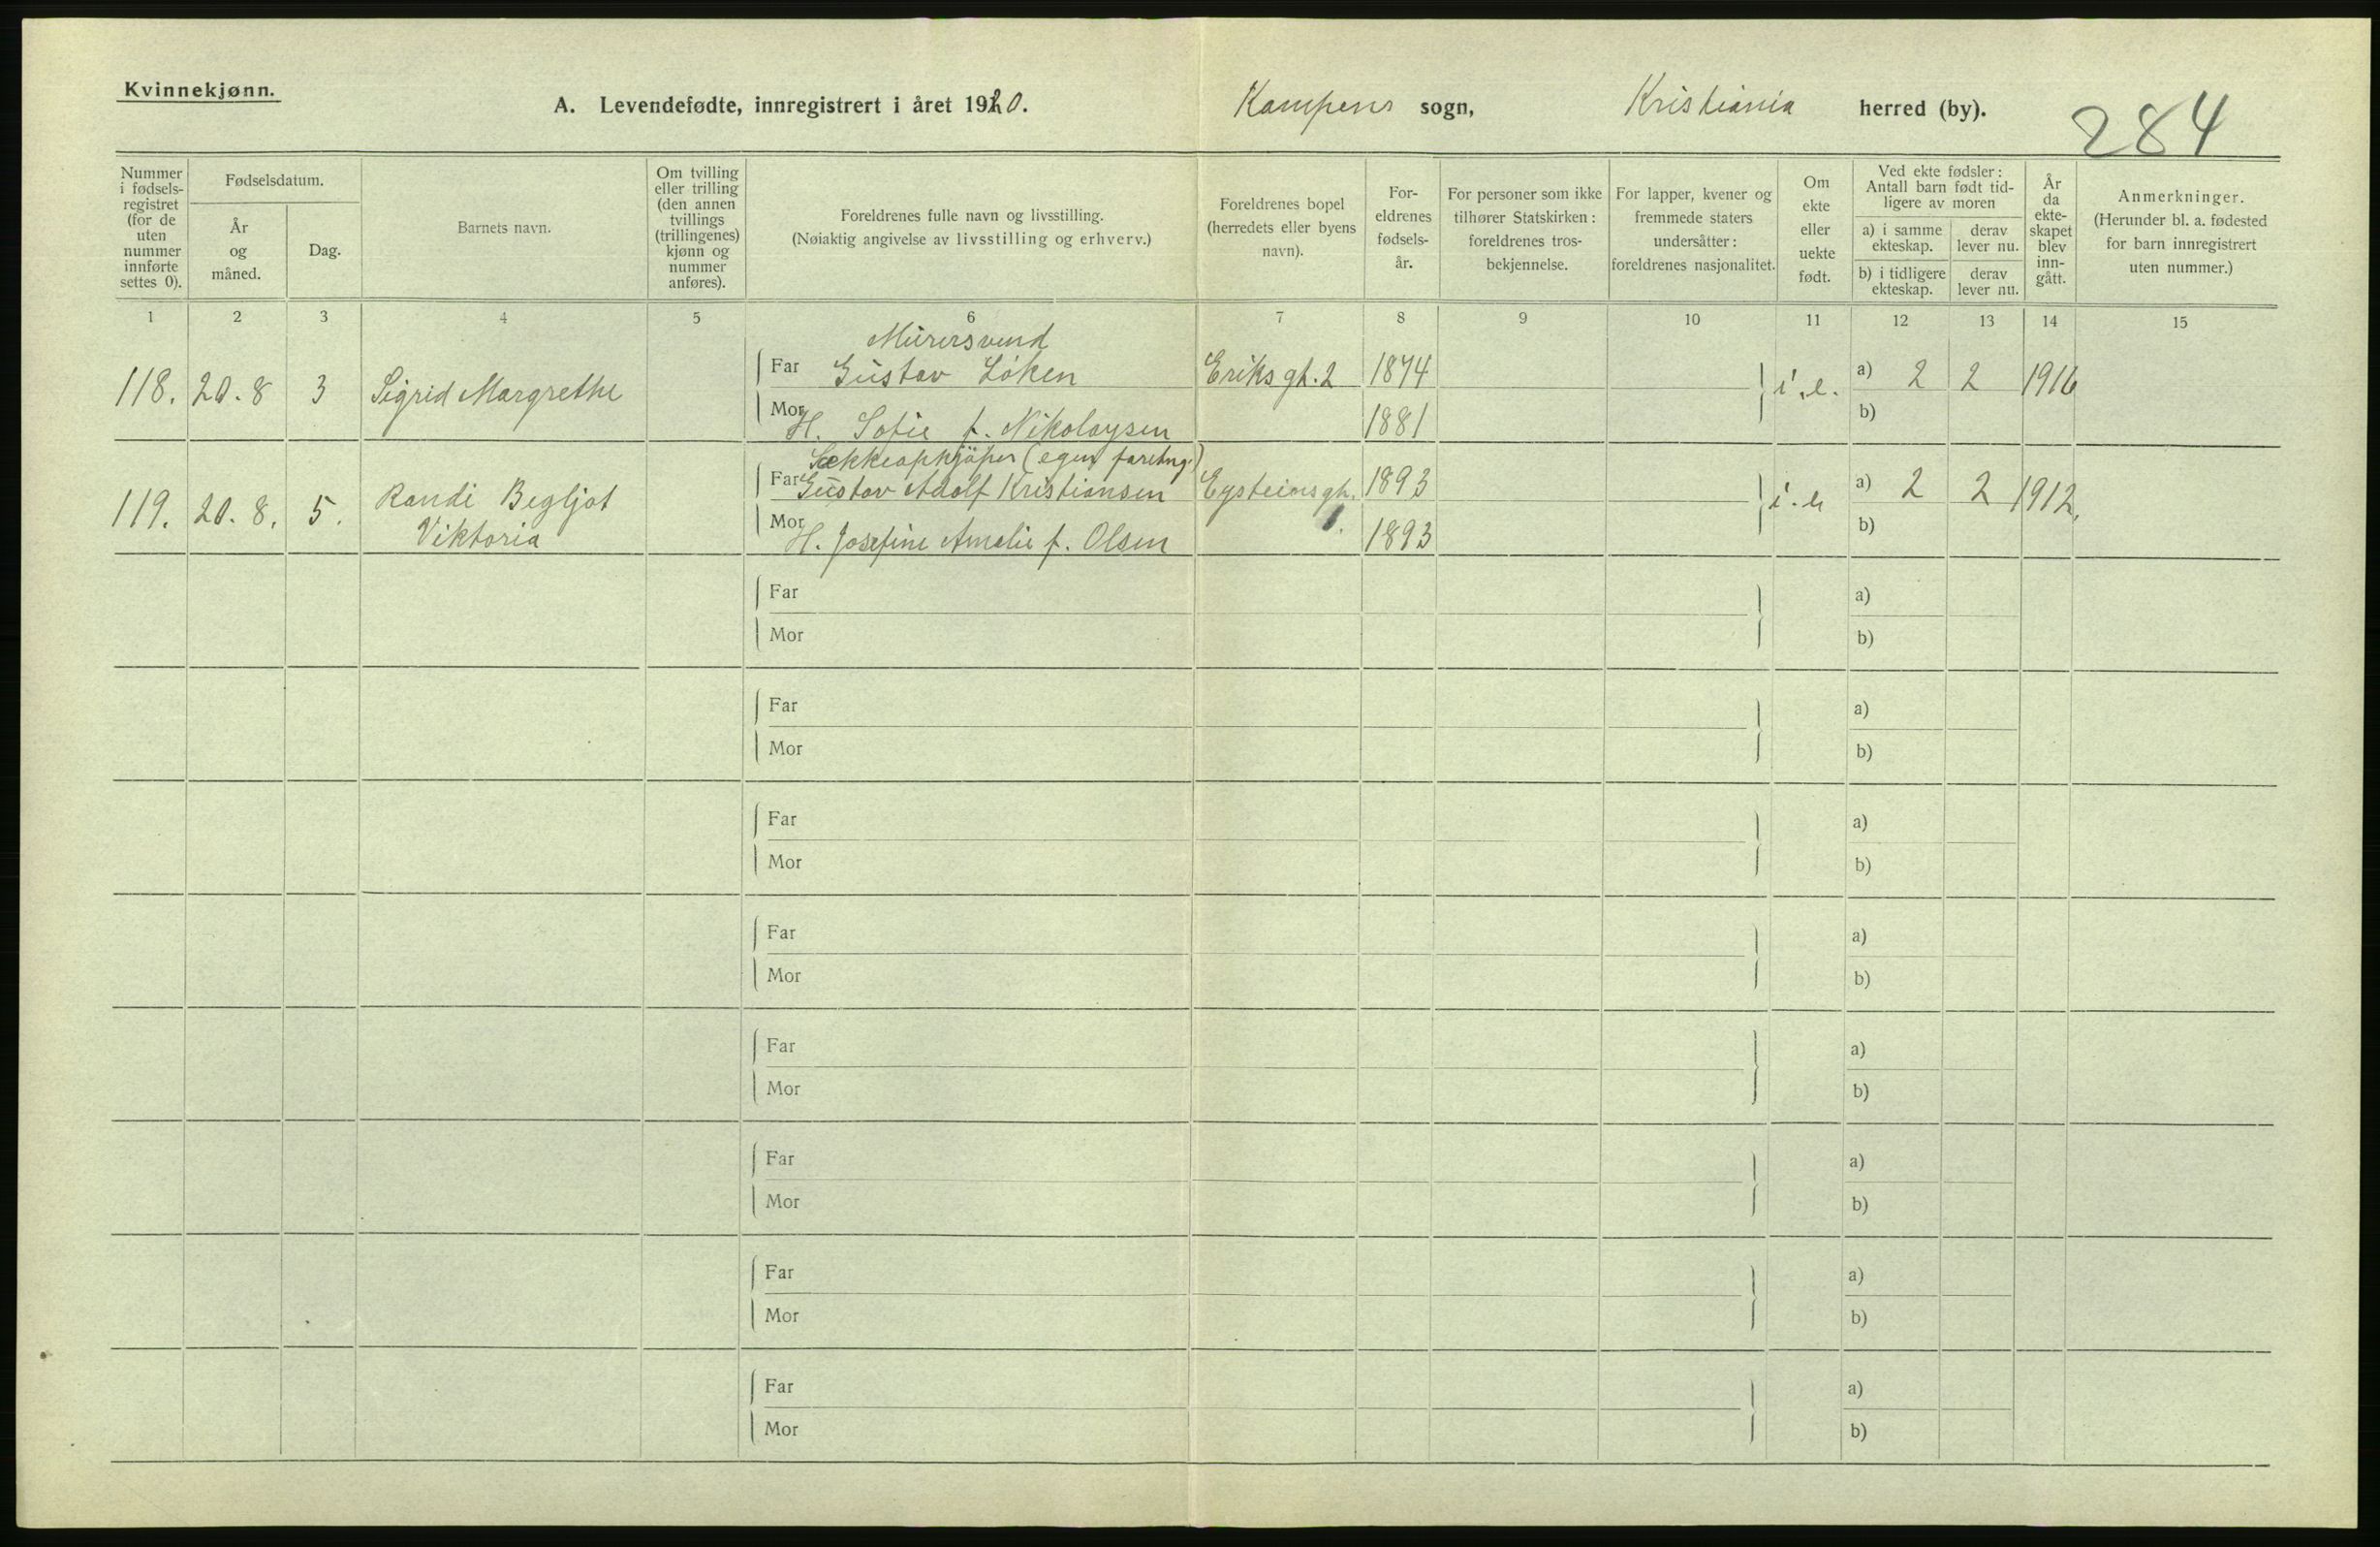 Kvinnekjønn.
A. Levendefødte, innregistrert i året 1920.
Kampens sogn, Kristiania herred (by).
284
Nummer i fødselsregistret (for de uten nummer innførte settes 0).
Fødselsdatum.
År og måned.
Dag.
Barnets navn.
Om tvilling eller trilling (den annen tvillings (trillingenes) kjønn og nummer anføres).
Foreldrenes fulle navn og livsstilling.
(Nøiaktig angivelse av livsstilling og erhverv.)
Foreldrenes bopel (herredets eller byens navn).
Foreldrenes fødselsår.
For personer som ikke tilhører Statskirken: foreldrenes trosbekjennelse.
For lapper, kvener og fremmede staters undersåtter: foreldrenes nasjonalitet.
Om ekte eller uekte født.
Ved ekte fødsler: Antall barn født tidligere av moren
a) i samme ekteskap.
derav lever nu.
b) i tidligere ekteskap.
derav lever nu.
År da ekteskapet blev inngått.
Anmerkninger.
(Herunder bl. a. fødested for barn innregistrert uten nummer.)
1 2 3 4 5 6 7 8 9 10 11 12 13 14 15
Murersvend
118. 20. 8 3 Sigrid Margrethe Far Gustav Løken Eriks gt. 2 1874 i. e. a) 2 2 1916
Mor H. Sofie f. Nikolaysen 1881 b)
Sækkeopkjøper (egen foretng.)
119. 20. 8. 5. Randi Begljot Far Gustav Adolf Kristiansen Eysteinsgt. 1893 i. e a) 2 2 1912.
Viktoria Mor H. Josefine Amalie f. Olsen 1. 1893 b)
Far a)
Mor b)
Far a)
Mor b)
Far a)
Mor b)
Far a)
Mor b)
Far a)
Mor b)
Far a)
Mor b)
Far a)
Mor b)
Far a)
Mor b)